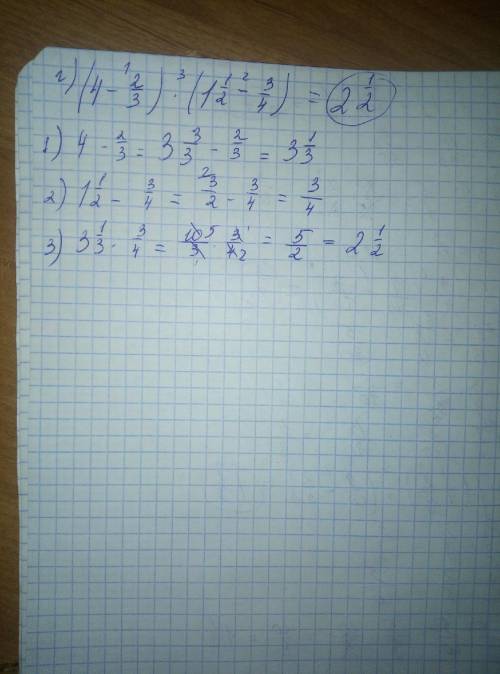 г) (4 - 2/3) · (1 1/2 - 3/4) = 2 1/2
1) 4 - 2/3 = 3 3/3 - 2/3 = 3 1/3
2) 1 1/2 - 3/4 = 3/2 - 3/4 = 3/4
3) 3 1/3 · 3/4 = 10/3 · 3/4 = 5/2 = 2 1/2